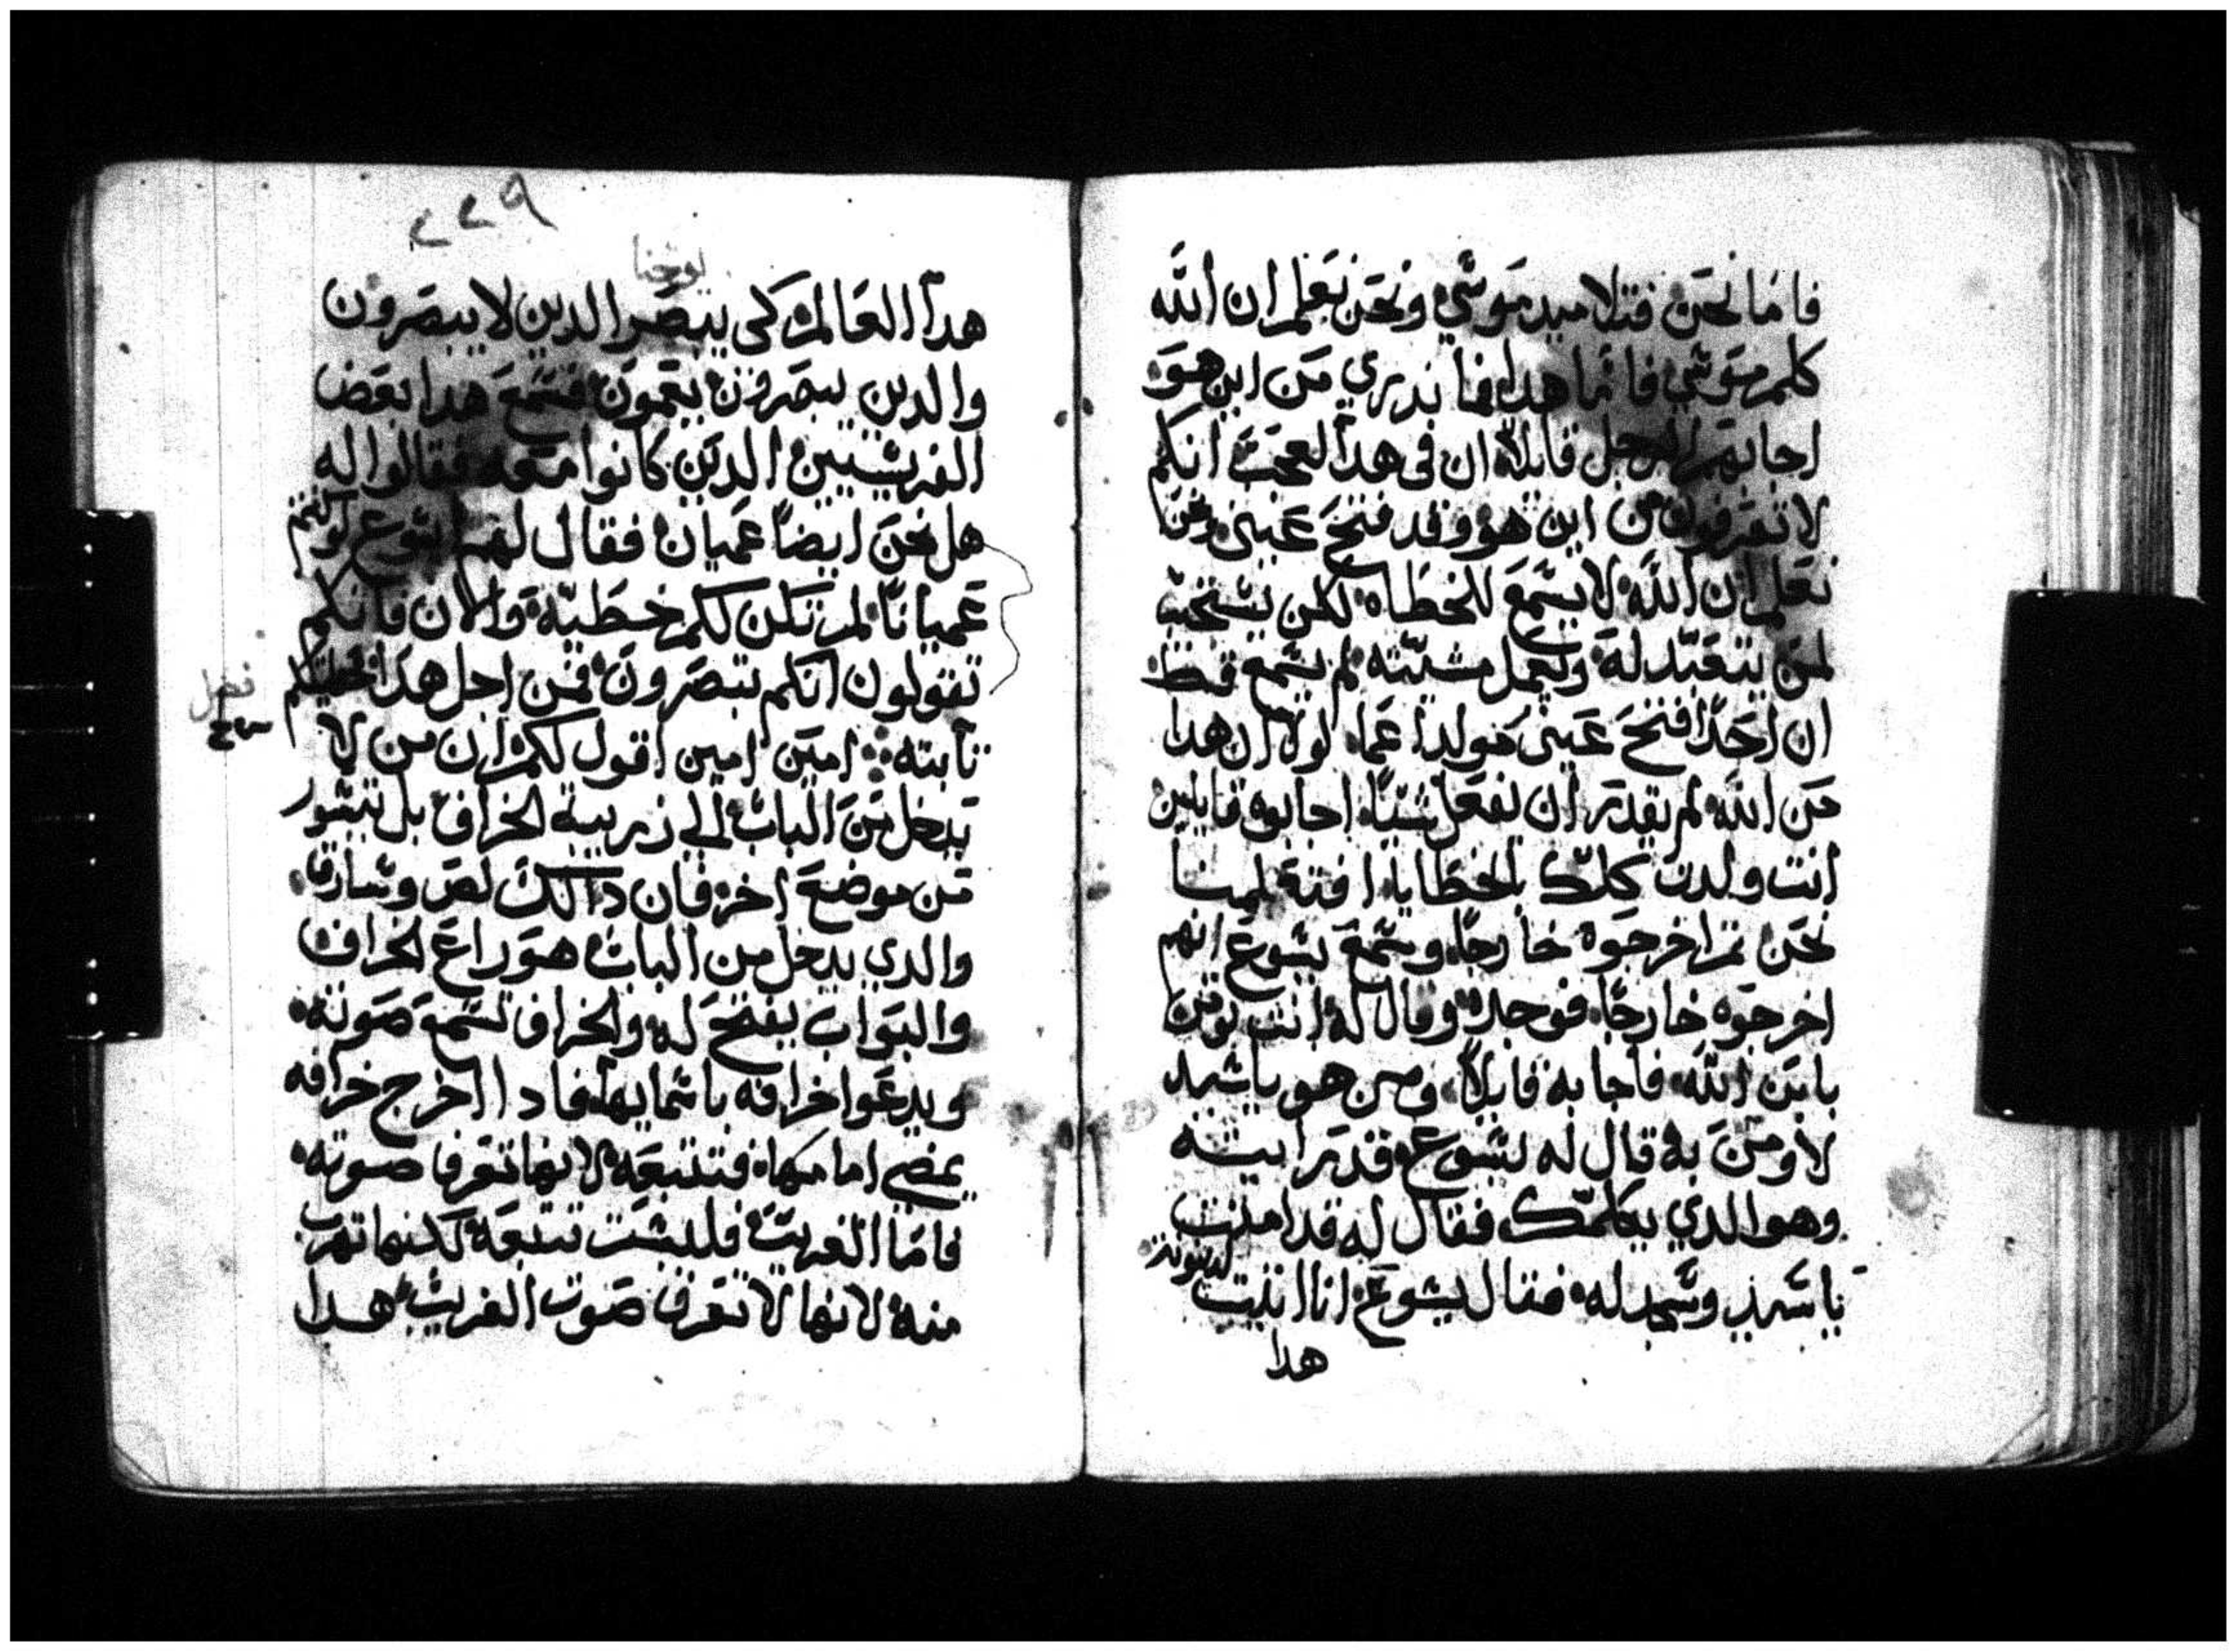 فاما نحن فتلاميد موسي ونحن نعلم ان الله
كلم موسي فاما هدا فما ندري من اين هو
اجابهم الرجل قايلا ان في هدا لعجب انكم
لا تعرفون من اين هو وقد فتح عيني ونحن
نعلم ان الله لا يسمع للخطاه لكن يستجيب
لمن يتعبد له ويعمل مشيته لم يسمع قط
ان احدا فتح عيني مولود اعما لولا ان هدا
من الله لم يقدر ان يفعل شيا اجابوه قايلين
انت ولدت كلك بالخطايا افتعلمنا
نحن ثم اخرجوه خارجا وسمع يسوع انهم
اخرجوه خارجا فوجده وقال له انت تومن
بابن الله فاجابه قايلا ومن هو ياسيد
لاومن به قال له يسوع قد رايته
وهو الدي يكلمك فقال له قد امنت
ياسيد وسجد له فقال يسوع انا اتيت لدينونة
هدا
٢٢٩
يوحنا
هدا العالم كي يبصر الدين لا يبصرون
والدين يبصرون يعمون فسمع هدا بعض
الفريسيين الدين كانوا معه فقالوا له
هل نحن ايضا عميان فقال لهم يسوع لو كنتم
عميانا لم تكن لكم خطية والان فانكم
تقولون انكم تبصرون فمن اجل هدا خطيتكم
فصل
تابته امين امين اقول لكم ان من لا
يدخل من الباب الي زريبة الخراف بل يتسور
من موضع اخر فان دالك لص وسارق
والدي يدخل من الباب هو راع الخراف
والبواب يفتح له والخراف تسمع صوته
ويدعوا خرافه باسمايها فادا اخرج خرافه
يمضي امامها فتتبعه لانها تعرف صوته
فاما الغريب فليست تتبعه لكنها تهرب
منه لانها لا تعرف صوت الغريب هدا